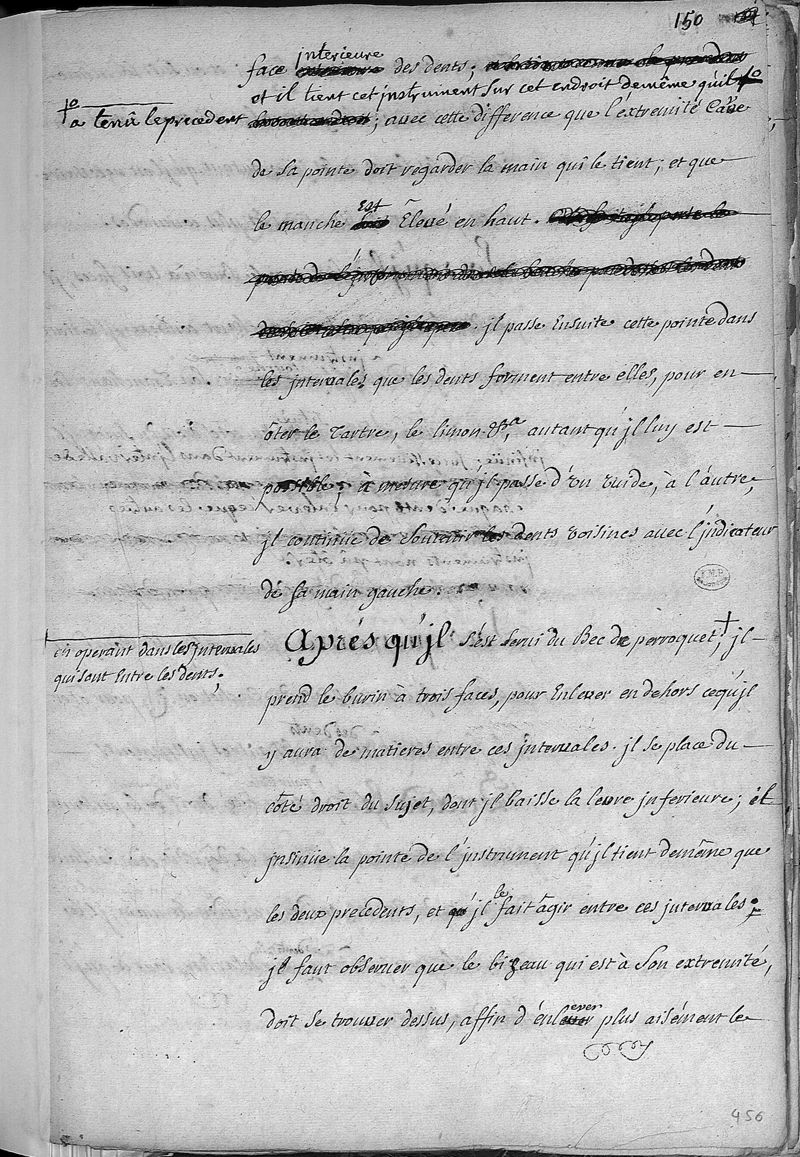 150
face interieure des dents;
et il tient cet instrument sur cet endroit de même qu'il
a tenû le precedent ; avec cette difference que l'extremité Cave
de sa pointe doit regarder la main qui le tient; et que
le manche est Êlevé en haut.
jl passe Ensuite cette pointe dans
les jntervales que les dents forment entre elles, pour en
ôter le Tartre, le limon &ca, autant qu'jl luy est
possible; à mesure qu'jl passe d'un vuide, à l'autre,
jl continüe de Soutenir les dents voisines avec l'jndicateur
dé sa main gauche.
Aprés qu'jl s'est servi du Bec de perroquet,† jl
en operant dans les jntervales
qui sont Entre les dents,
prend le burin à trois faces, pour Enlever en dehors ce qu'jl
y aura de matieres entre ces jntervales. jl se place du
côté droit du sujet, dont jl baisse la levre jnferieure; et
jnsinüe la pointe de l'jnstrument qu'jl tient de même que
les deux precedents, et qu'jl le fait agir entre ces jntervales;
jl faut observer que le bizeau qui est à Son extremité,
doit se trouver dessus, affin d'énlever plus aisément le
456